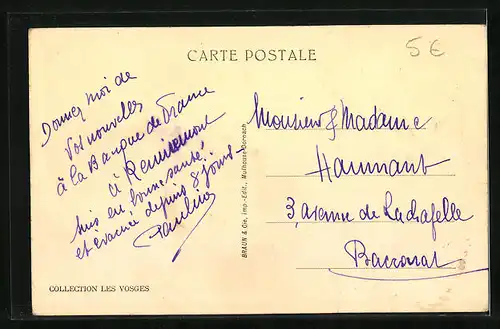 CARTE POSTALE
5€
Donnez moi de
Vos nouvelles
à la Banque de France
à Remiremont
suis en bonne santé,
et évacuée depuis 8 jours -
Pauline
BRAUN & Cie, Imp.-Edit., Mulhouse-Dornach
Monsieur & Madame
Hannant
3, avenue de Lachapelle
Baccarat
COLLECTION LES VOSGES